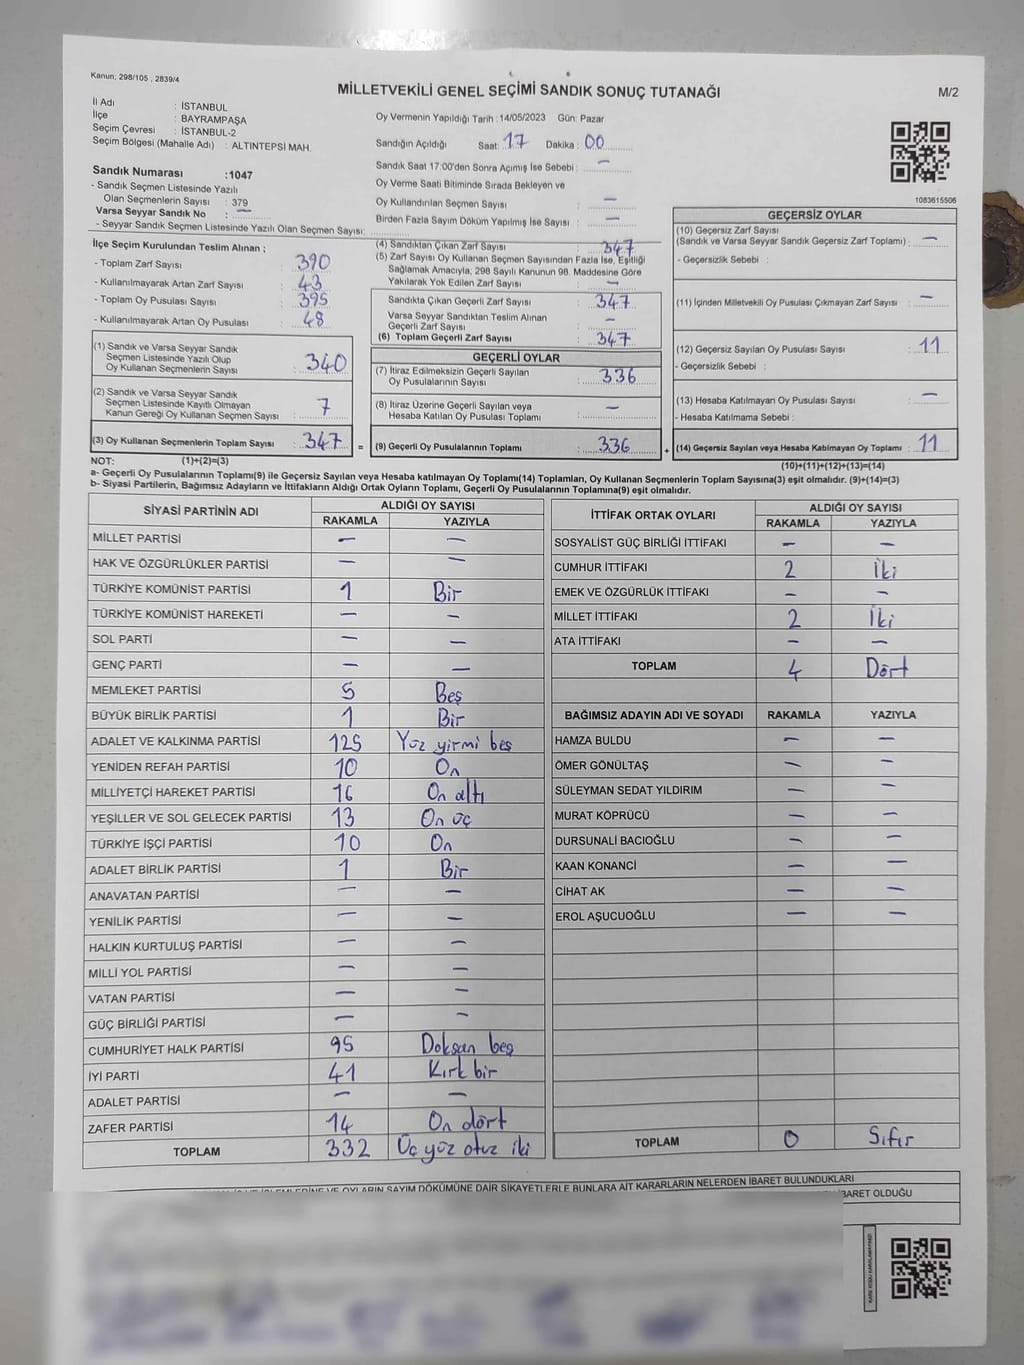 Kanun; 298/105 , 2839/4
MİLLETVEKİLİ GENEL SEÇİMİ SANDIK SONUÇ TUTANAĞI
M/2
İl Adı : İSTANBUL
İlçe : BAYRAMPAŞA
Seçim Çevresi : İSTANBUL-2
Seçim Bölgesi (Mahalle Adı) : ALTINTEPSİ MAH.
Oy Vermenin Yapıldığı Tarih : 14/05/2023 Gün: Pazar
Sandığın Açıldığı Saat: 17 Dakika : 00
Sandık Saat 17:00'den Sonra Açımış İse Sebebi : —
Oy Verme Saati Bitiminde Sırada Bekleyen ve
Oy Kullandırılan Seçmen Sayısı : —
Birden Fazla Sayım Döküm Yapılmış İse Sayısı : —
1083615506
Sandık Numarası :1047
- Sandık Seçmen Listesinde Yazılı
Olan Seçmenlerin Sayısı : 379
Varsa Seyyar Sandık No : —
- Seyyar Sandık Seçmen Listesinde Yazılı Olan Seçmen Sayısı:
İlçe Seçim Kurulundan Teslim Alınan ;
- Toplam Zarf Sayısı : 390
- Kullanılmayarak Artan Zarf Sayısı : 43
- Toplam Oy Pusulası Sayısı : 395
- Kullanılmayarak Artan Oy Pusulası : 48
(1) Sandık ve Varsa Seyyar Sandık
Seçmen Listesinde Yazılı Olup
Oy Kullanan Seçmenlerin Sayısı : 340
(2) Sandık ve Varsa Seyyar Sandık
Seçmen Listesinde Kayıtlı Olmayan
Kanun Gereği Oy Kullanan Seçmen Sayısı : 7
(3) Oy Kullanan Seçmenlerin Toplam Sayısı : 347 =
(4) Sandıktan Çıkan Zarf Sayısı : 347
(5) Zarf Sayısı Oy Kullanan Seçmen Sayısından Fazla İse, Eşitliği
Sağlamak Amacıyla; 298 Sayılı Kanunun 98. Maddesine Göre
Yakılarak Yok Edilen Zarf Sayısı : —
Sandıkta Çıkan Geçerli Zarf Sayısı : 347
Varsa Seyyar Sandıktan Teslim Alınan
Geçerli Zarf Sayısı : —
(6) Toplam Geçerli Zarf Sayısı : 347
GEÇERLİ OYLAR
(7) İtiraz Edilmeksizin Geçerli Sayılan
Oy Pusulalarının Sayısı : 336
(8) İtiraz Üzerine Geçerli Sayılan veya
Hesaba Katılan Oy Pusulası Toplamı : —
(9) Geçerli Oy Pusulalarının Toplamı : 336 +
GEÇERSİZ OYLAR
(10) Geçersiz Zarf Sayısı
(Sandık ve Varsa Seyyar Sandık Geçersiz Zarf Toplamı) : —
- Geçersizlik Sebebi :
(11) İçinden Milletvekili Oy Pusulası Çıkmayan Zarf Sayısı : —
(12) Geçersiz Sayılan Oy Pusulası Sayısı : 11
- Geçersizlik Sebebi :
(13) Hesaba Katılmayan Oy Pusulası Sayısı : —
- Hesaba Katılmama Sebebi :
(14) Geçersiz Sayılan veya Hesaba Katılmayan Oy Toplamı : 11
NOT: (1)+(2)=(3)
(10)+(11)+(12)+(13)=(14)
a- Geçerli Oy Pusulalarının Toplamı(9) ile Geçersiz Sayılan veya Hesaba katılmayan Oy Toplamı(14) Toplamları, Oy Kullanan Seçmenlerin Toplam Sayısına(3) eşit olmalıdır. (9)+(14)=(3)
b- Siyasi Partilerin, Bağımsız Adayların ve İttifakların Aldığı Ortak Oyların Toplamı, Geçerli Oy Pusulalarının Toplamına(9) eşit olmalıdır.
SİYASİ PARTİNİN ADI ALDIĞI OY SAYISI
RAKAMLA YAZIYLA
MİLLET PARTİSİ — —
HAK VE ÖZGÜRLÜKLER PARTİSİ — —
TÜRKİYE KOMÜNİST PARTİSİ 1 Bir
TÜRKİYE KOMÜNİST HAREKETİ — —
SOL PARTİ — —
GENÇ PARTİ — —
MEMLEKET PARTİSİ 5 Beş
BÜYÜK BİRLİK PARTİSİ 1 Bir
ADALET VE KALKINMA PARTİSİ 125 Yüz yirmi beş
YENİDEN REFAH PARTİSİ 10 On
MİLLİYETÇİ HAREKET PARTİSİ 16 On altı
YEŞİLLER VE SOL GELECEK PARTİSİ 13 On üç
TÜRKİYE İŞÇİ PARTİSİ 10 On
ADALET BİRLİK PARTİSİ 1 Bir
ANAVATAN PARTİSİ — —
YENİLİK PARTİSİ — —
HALKIN KURTULUŞ PARTİSİ — —
MİLLİ YOL PARTİSİ — —
VATAN PARTİSİ — —
GÜÇ BİRLİĞİ PARTİSİ — —
CUMHURİYET HALK PARTİSİ 95 Doksan beş
İYİ PARTİ 41 Kırk bir
ADALET PARTİSİ — —
ZAFER PARTİSİ 14 On dört
TOPLAM 332 Üç yüz otuz iki
İTTİFAK ORTAK OYLARI ALDIĞI OY SAYISI
RAKAMLA YAZIYLA
SOSYALİST GÜÇ BİRLİĞİ İTTİFAKI — —
CUMHUR İTTİFAKI 2 İki
EMEK VE ÖZGÜRLÜK İTTİFAKI — —
MİLLET İTTİFAKI 2 İki
ATA İTTİFAKI — —
TOPLAM 4 Dört
BAĞIMSIZ ADAYIN ADI VE SOYADI RAKAMLA YAZIYLA
HAMZA BULDU — —
ÖMER GÖNÜLTAŞ — —
SÜLEYMAN SEDAT YILDIRIM — —
MURAT KÖPRÜCÜ — —
DURSUNALİ BACIOĞLU — —
KAAN KONANCİ — —
CİHAT AK — —
EROL AŞUCUOĞLU — —
TOPLAM 0 Sıfır
OYLARIN SAYIM DÖKÜMÜNE DAİR ŞİKAYETLERLE BUNLARA AİT KARARLARIN NELERDEN İBARET BULUNDUKLARI
İBARET OLDUĞU